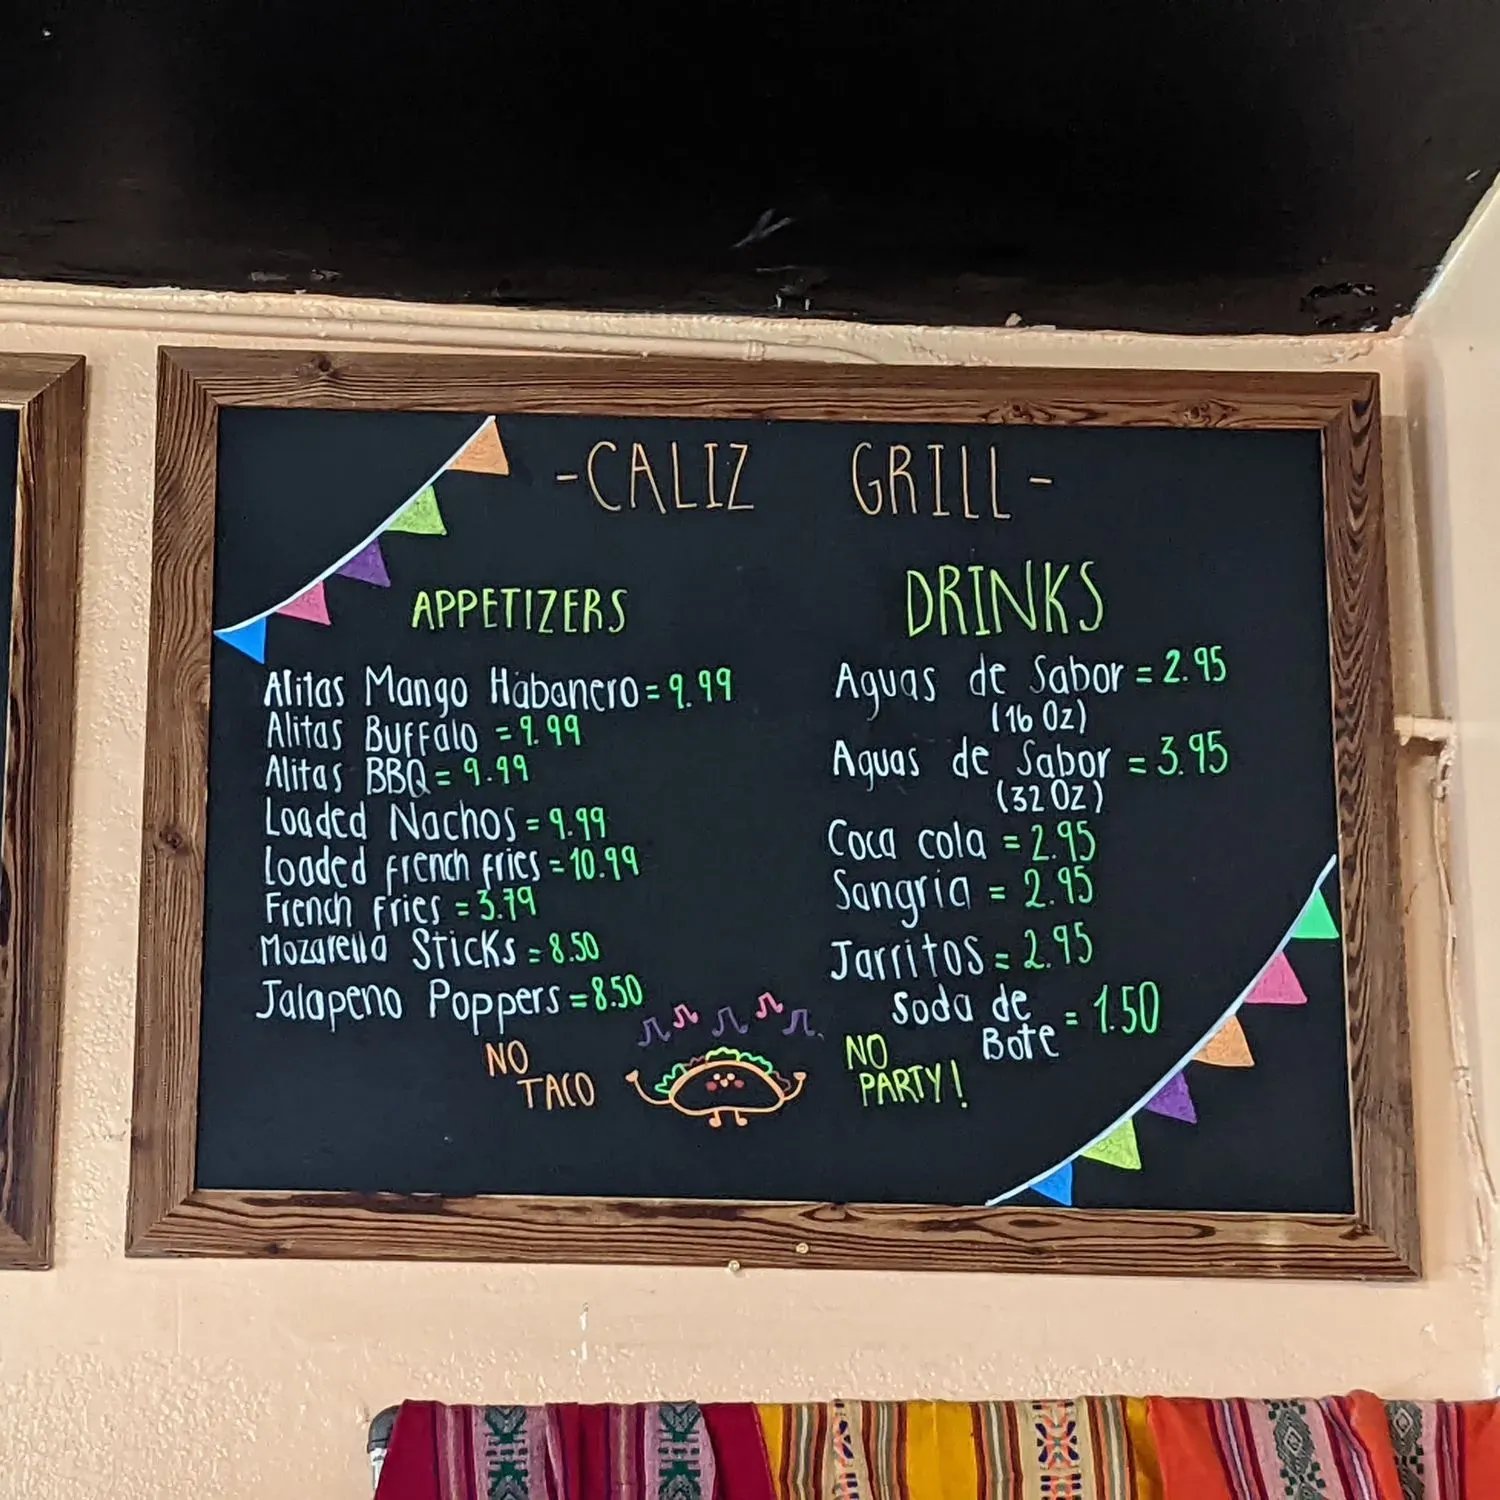 -CALIZ GRILL-
APPETIZERS
Alitas Mango Habanero = 9.99
Alitas Buffalo = 9.99
Alitas BBQ = 9.99
Loaded Nachos = 9.99
Loaded french fries = 10.99
French Fries = 3.79
Mozarella Sticks = 8.50
Jalapeno Poppers = 8.50
DRINKS
Aguas de Sabor = 2.95
(16 Oz)
Aguas de Sabor = 3.95
(32 Oz)
Coca cola = 2.95
Sangria = 2.95
Jarritos = 2.95
Soda de
Bote = 1.50
NO
TACO
NO
PARTY!